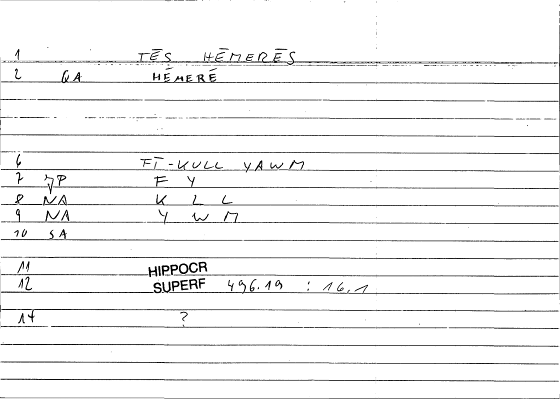 1 TĒS HĒMERĒS
2 QA HĒMERĒ
6 FĪ-KULL YAWM
7 P F Y
8 NA K L L
9 NA Y W M
10 SA
11 HIPPOCR
12 SUPERF 496.19 : 16.1
14 ?